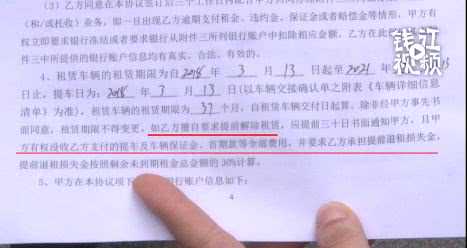 （3）乙方同意在本协议签订后三个工作日内
（和/或托收）业务，即一旦出现乙方逾期支付租金、违约金、保证金或者赔偿金等情形，甲方有
权立即要求银行冻结或者要求银行从附件三所列银行账户中扣除相应金额。乙方在此
件三中所提供的银行账户信息均有真实、合法、有效的。
4、租赁车辆的租赁期限为自2018年3月13日起至2021年
日止，提车日为：2018年3月13日（以《车辆交接确认单之附表《车辆详细信息
清单》为准），租赁车辆的租赁期限为37个月，自租赁车辆交付日起算。除非经甲方事先书
面同意，租赁期限不得变更。如乙方擅自要求提前解除租赁，应提前三十日书面通知甲方，且甲
方有权没收乙方支付的提车及车辆保证金、首期款等全部费用，并要求乙方承担提前退租损失金，
提前退租损失金按照剩余未到期租金总金额的30%计算。
5、甲方在本协议项下 银行账户信息如下：
4
钱江
视频